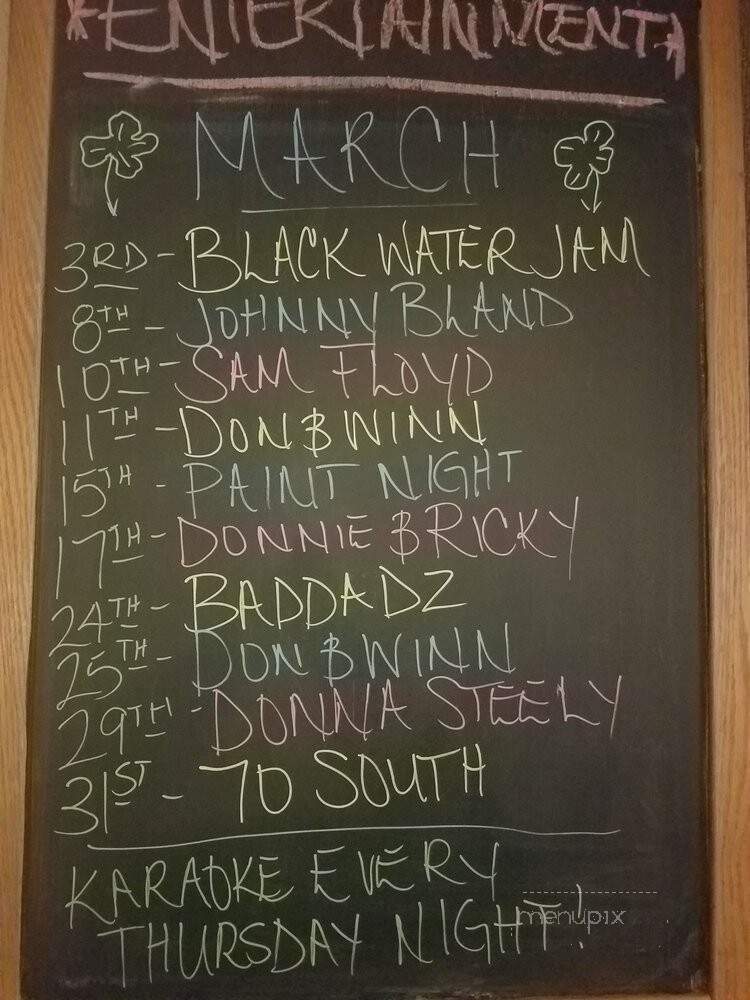 *ENTERTAINMENT*
MARCH
3RD - BLACK WATER JAM
8TH - JOHNNY BLAND
10TH - SAM FLOYD
11TH - DON & WINN
15TH - PAINT NIGHT
17TH - DONNIE & RICKY
24TH - BADDADZ
25TH - DON & WINN
29TH - DONNA STEELY
31ST - 70 SOUTH
KARAOKE EVERY
THURSDAY NIGHT!
menupix